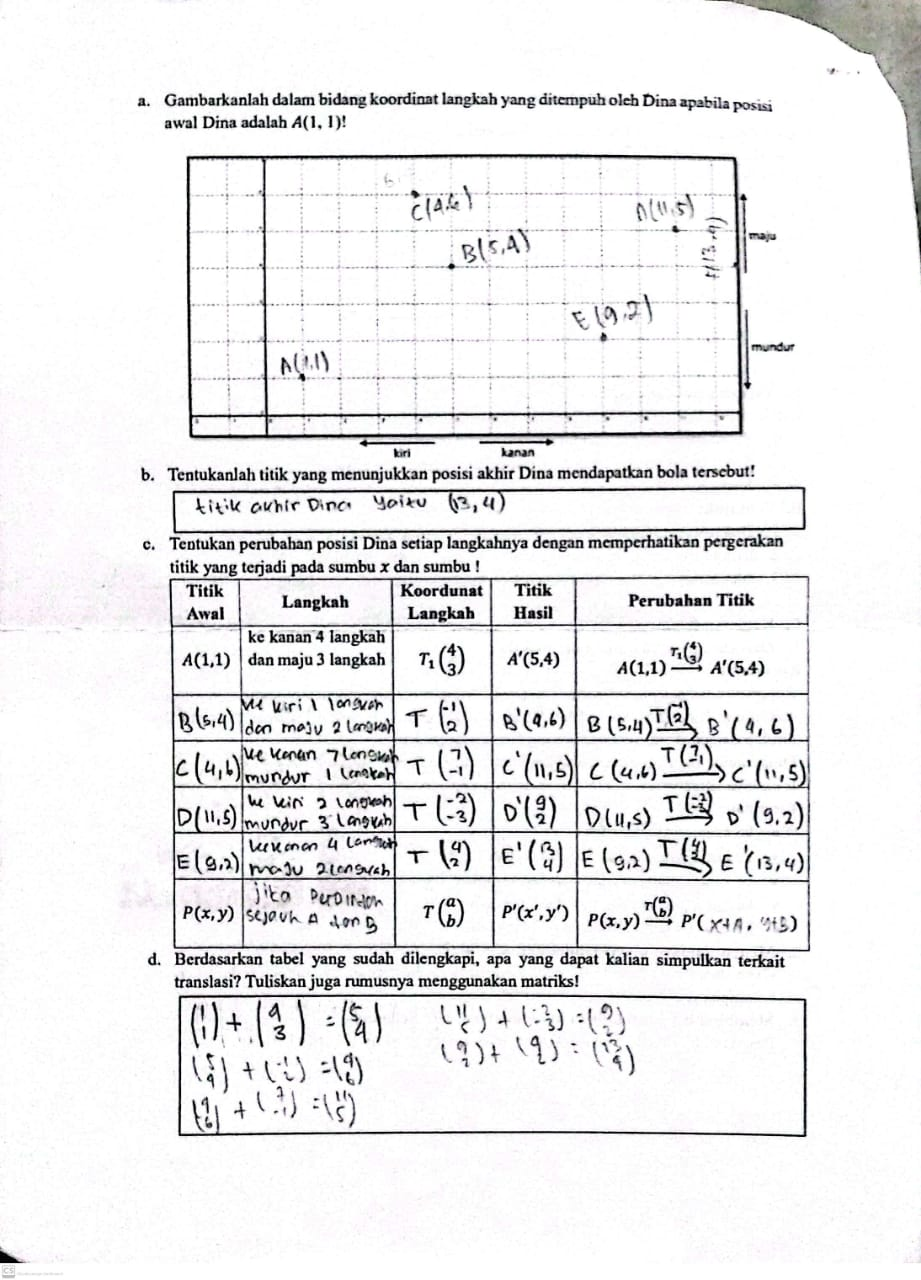 a. Gambarkanlah dalam bidang koordinat langkah yang ditempuh oleh Dina apabila posisi
awal Dina adalah A(1, 1)!
C(4,6)
D(11,5)
B(5,4)
maju
E(9,2)
mundur
A(1,1)
kiri
kanan
b. Tentukanlah titik yang menunjukkan posisi akhir Dina mendapatkan bola tersebut!
titik akhir Dina yaitu (13,4)
c. Tentukan perubahan posisi Dina setiap langkahnya dengan memperhatikan pergerakan
titik yang terjadi pada sumbu x dan sumbu !
Titik Awal | Langkah | Koordunat Langkah | Titik Hasil | Perubahan Titik
A(1,1) | ke kanan 4 langkah dan maju 3 langkah | T₁(4 3) | A'(5,4) | A(1,1) T₁(4 3) → A'(5,4)
B(5,4) | ke kiri 1 langkah dan maju 2 langkah | T(-1 2) | B'(4,6) | B(5,4) T(-1 2) → B'(4,6)
C(4,6) | ke kanan 7 langkah mundur 1 langkah | T(7 -1) | C'(11,5) | C(4,6) T(7 -1) → C'(11,5)
D(11,5) | ke kiri 2 langkah mundur 3 langkah | T(-2 -3) | D'(9 2) | D(11,5) T(-2 -3) → D'(9,2)
E(9,2) | ke kanan 4 langkah maju 2 langkah | T(4 2) | E'(13 4) | E(9,2) T(4 2) → E'(13,4)
P(x,y) | jika sejauh A dan B | T(a b) | P'(x',y') | P(x,y) T(a b) → P'(x+A, y+B)
d. Berdasarkan tabel yang sudah dilengkapi, apa yang dapat kalian simpulkan terkait
translasi? Tuliskan juga rumusnya menggunakan matriks!
(1 1) + (4 3) = (5 4)
(5 4) + (-1 2) = (4 6)
(4 6) + (7 -1) = (11 5)
(11 5) + (-2 -3) = (9 2)
(9 2) + (4 2) = (13 4)
CS